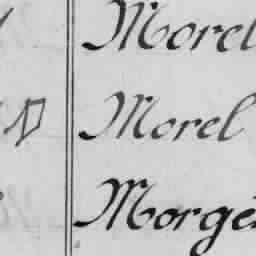 Morel
Morel
Morgé